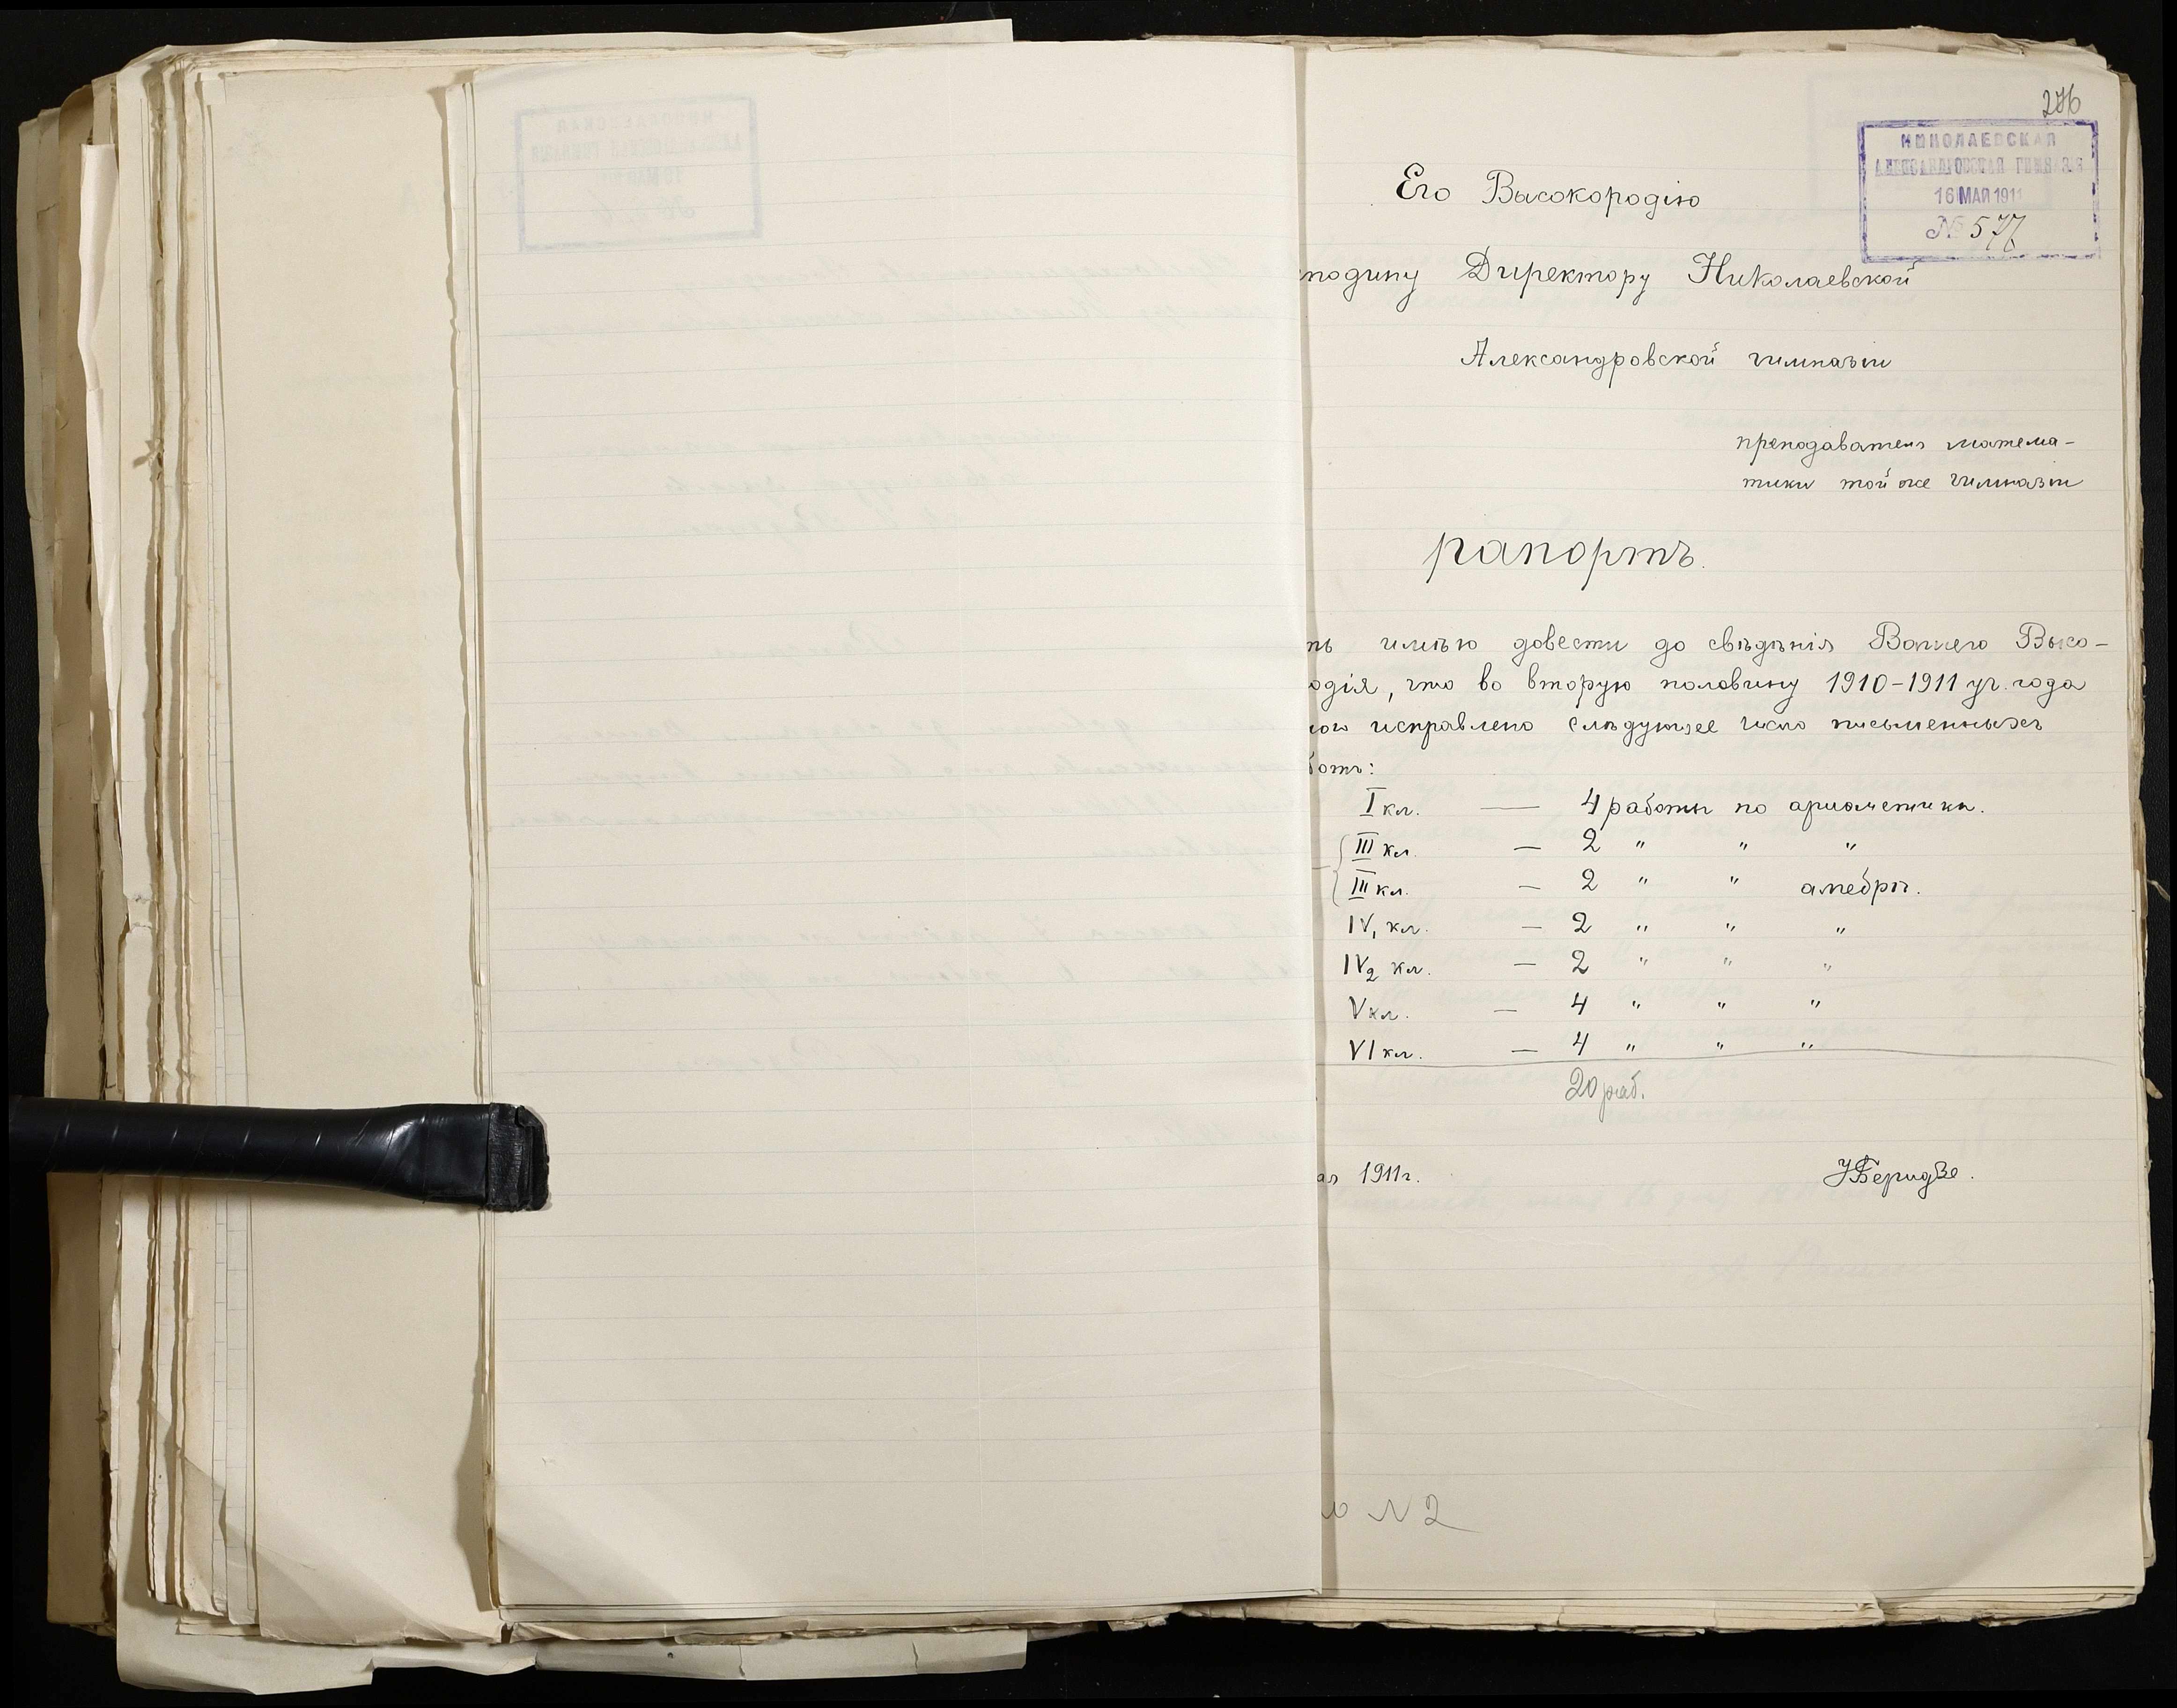 276
НИКОЛАЕВСКАЯ
АЛЕКСАНДРОВСКАЯ ГИМНАЗІЯ
16 МАЯ 1911
№ 577
Его Высокородію
подину Директору Николаевской
Александровской гимназіи
преподавателя матема-
тики той же гимназіи
рапортъ.
ть имѣю довести до свѣдѣнія Вашего Высо-
одія, что во вторую половину 1910-1911 уч. года
ою исправлено слѣдующее число письменныхъ
ботъ:
I кл. — 4 работы по ариѳметикѣ.
III кл. — 2 " " "
III кл. — 2 " " алгебрѣ.
IV1 кл. — 2 " " "
IV2 кл. — 2 " " "
V кл. — 4 " " "
VI кл. — 4 " " "
20 раб.
ая 1911 г.
Беридзе.
N 2